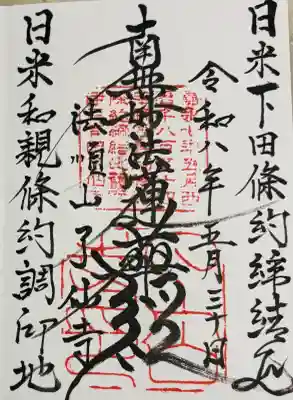 日米下田條約締結
令和八年五月三十日
南無妙法蓮華経
法順山 了仙寺
日米和親條約調印地